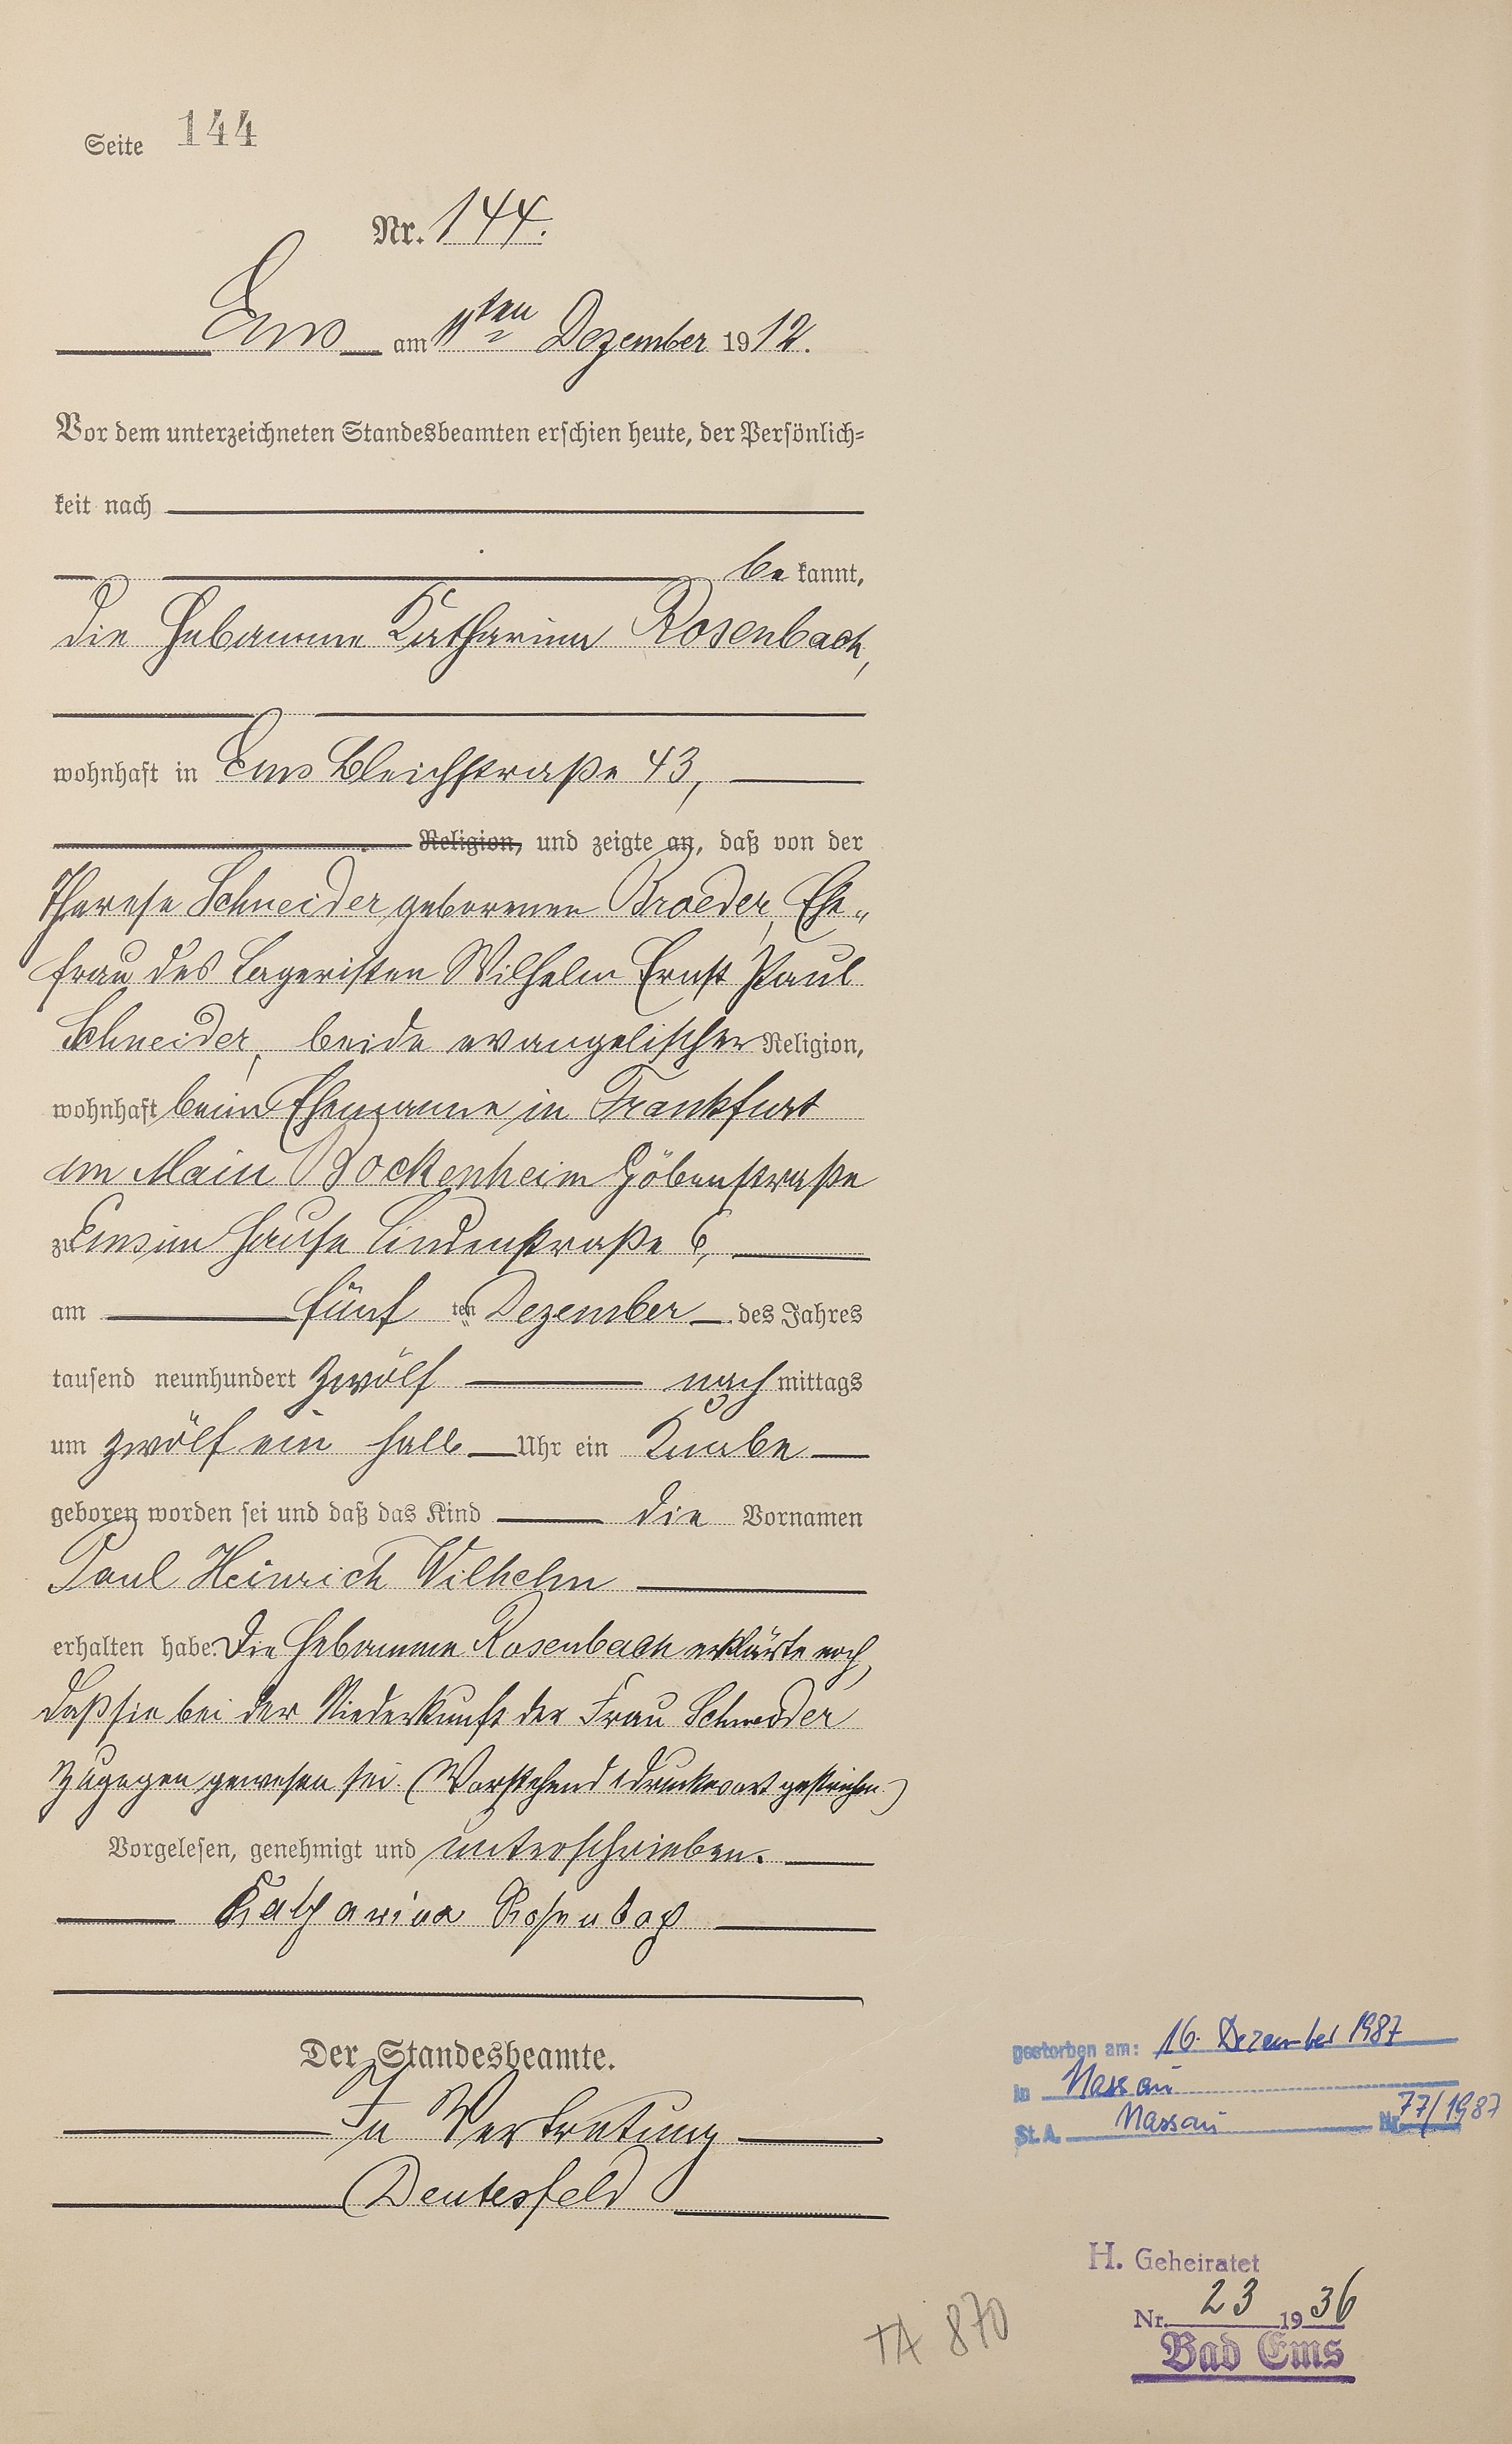 Seite 144
Nr. 144.
Ems am 11ten Dezember 1912.
Vor dem unterzeichneten Standesbeamten erschien heute, der Persönlich=
keit nach
be kannt,
die Hebamme Katharina Rosenbach,
wohnhaft in Ems Bleichstraße 43,
Religion, und zeigte an, daß von der
Therese Schneider geborenen Broeder, Ehe„
frau des Lageristen Wilhelm Ernst Paul
Schneider, beide evangelischer Religion,
wohnhaft beim Ehemanne in Frankfurt
am Main Bockenheim Göbenstraße
zu Ems im Hause Lindenstraße 6,
am fünf ten Dezember des Jahres
tausend neunhundert zwölf nach mittags
um zwölf ein halb Uhr ein Knabe
geboren worden sei und daß das Kind die Vornamen
Paul Heinrich Wilhelm
erhalten habe. Die Hebamme Rosenbach erklärte noch,
daß sie bei der Niederkunft der Frau Schneider
zugegen gewesen sei. (Vorstehend 1 Druckwort gestrichen.)
Vorgelesen, genehmigt und unterschrieben.
Katharina Rosenbach
Der Standesbeamte.
In Vertretung
Deutesfeld
gestorben am: 16. Dezember 1987
in Nassau
St. A. Nassau Nr. 77/1987
H. Geheiratet
Nr. 23 1936
Bad Ems
TA 870